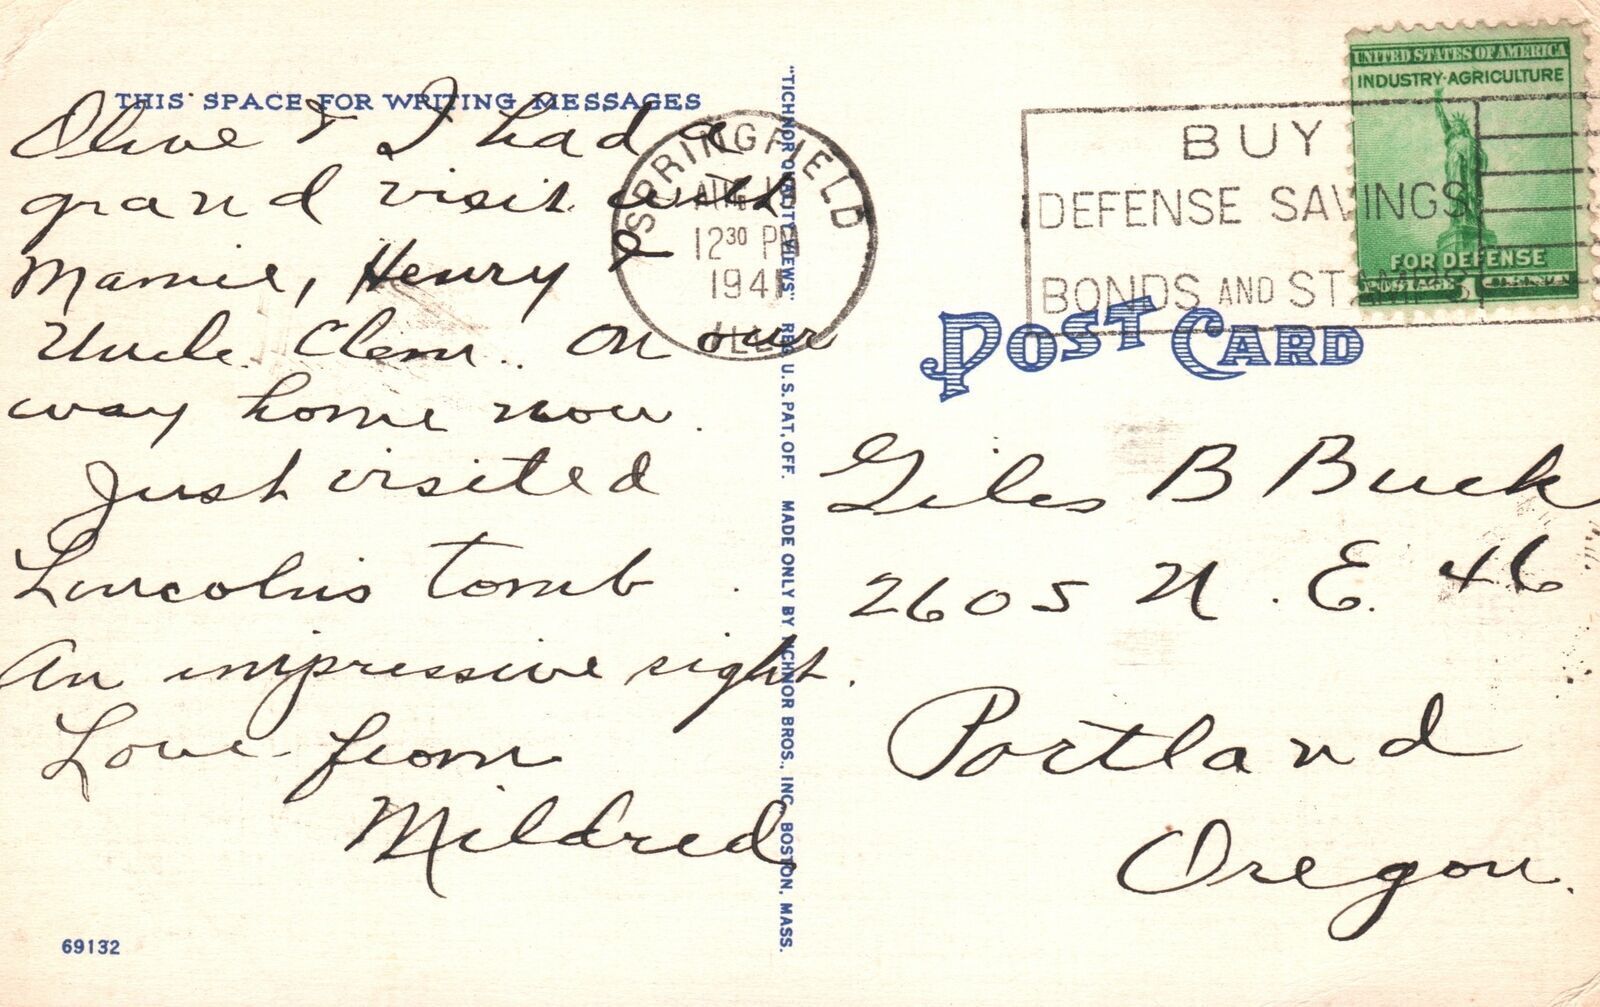 THIS SPACE FOR WRITING MESSAGES
Olive & I had a
grand visit with
Mamie, Henry &
Uncle Clem. On our
way home now.
Just visited
Lincolns tomb.
An impressive sight.
Love from
Mildred
69132
"TICHNOR QUALITY VIEWS" REG. U.S. PAT. OFF. MADE ONLY BY TICHNOR BROS., INC. BOSTON, MASS.
SPRINGFIELD
AUG
12 30 PM
1941
ILL.
BUY
DEFENSE SAVINGS
BONDS AND STAMPS
UNITED STATES OF AMERICA
INDUSTRY·AGRICULTURE
FOR DEFENSE
POSTAGE 1 CENT
POST CARD
Giles B Buck
2605 N. E. 46
Portland
Oregon.